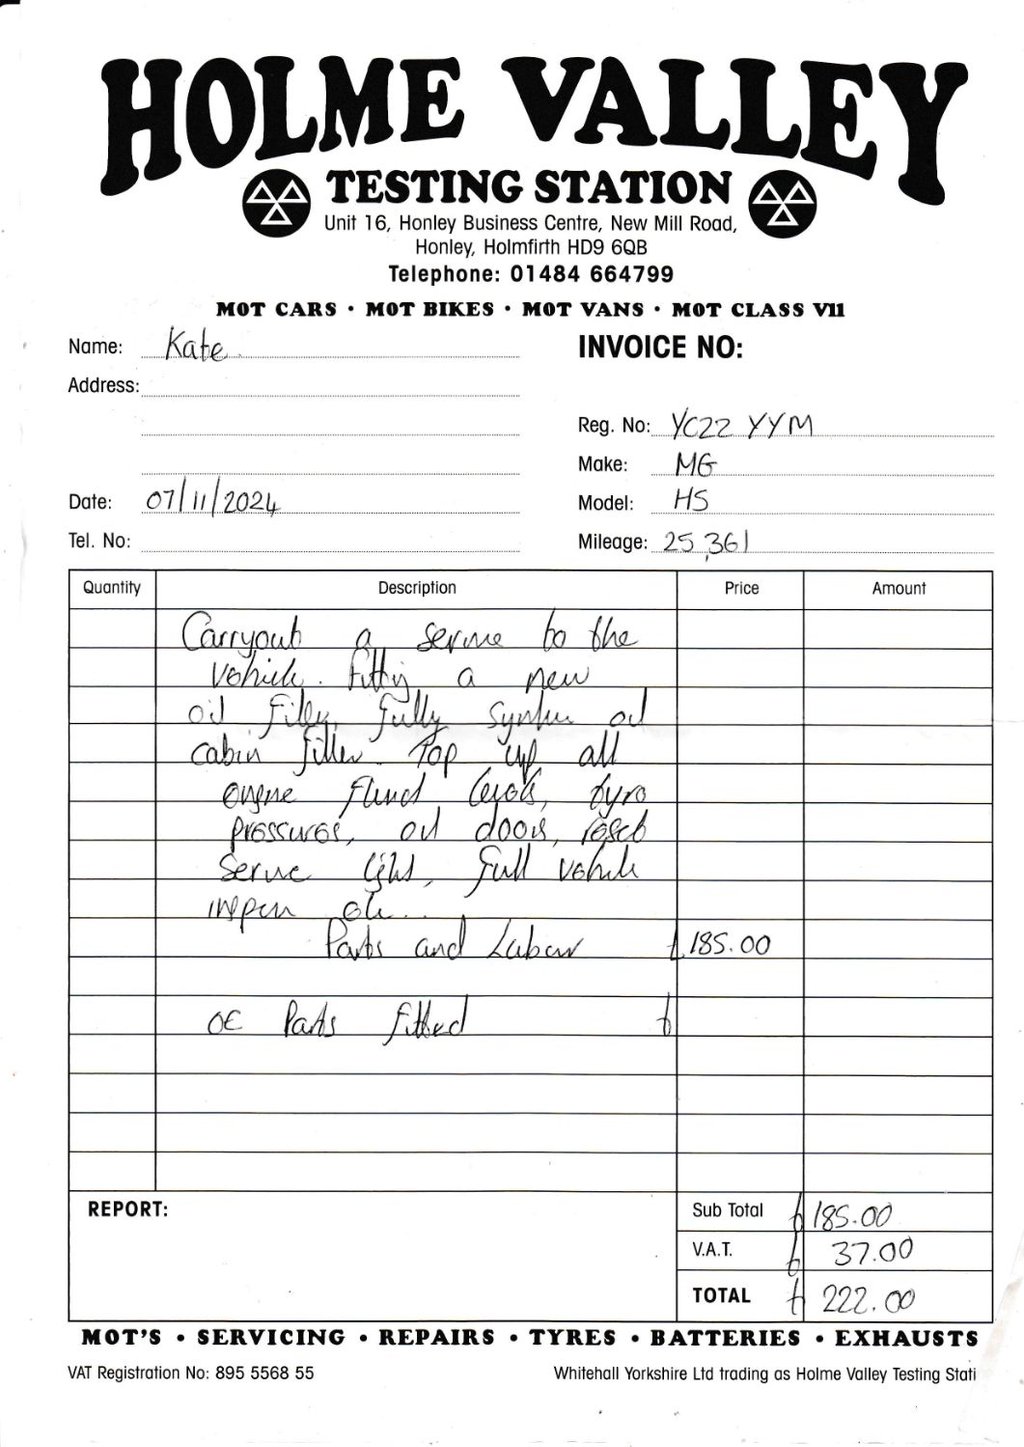 HOLME VALLEY
TESTING STATION
Unit 16, Honley Business Centre, New Mill Road,
Honley, Holmfirth HD9 6QB
Telephone: 01484 664799
MOT CARS • MOT BIKES • MOT VANS • MOT CLASS V11
Name: Kate
INVOICE NO:
Address:
Reg. No: YC22 YYM
Make: MG
Date: 07/11/2024
Model: HS
Tel. No:
Mileage: 25,361
Quantity Description Price Amount
Carryout a service to the
vehicle. Fitting a new
oil filter, Fully oil
cabin filter. Top up all
engine fluid levels, tyre
pressures, oil doors, reset
service light, full vehicle
ok..
Parts and Labour £ 185.00
OE Parts fitted £
REPORT:
Sub Total £ 185.00
V.A.T. £ 37.00
TOTAL £ 222.00
MOT'S • SERVICING • REPAIRS • TYRES • BATTERIES • EXHAUSTS
VAT Registration No: 895 5568 55
Whitehall Yorkshire Ltd trading as Holme Valley Testing Stati